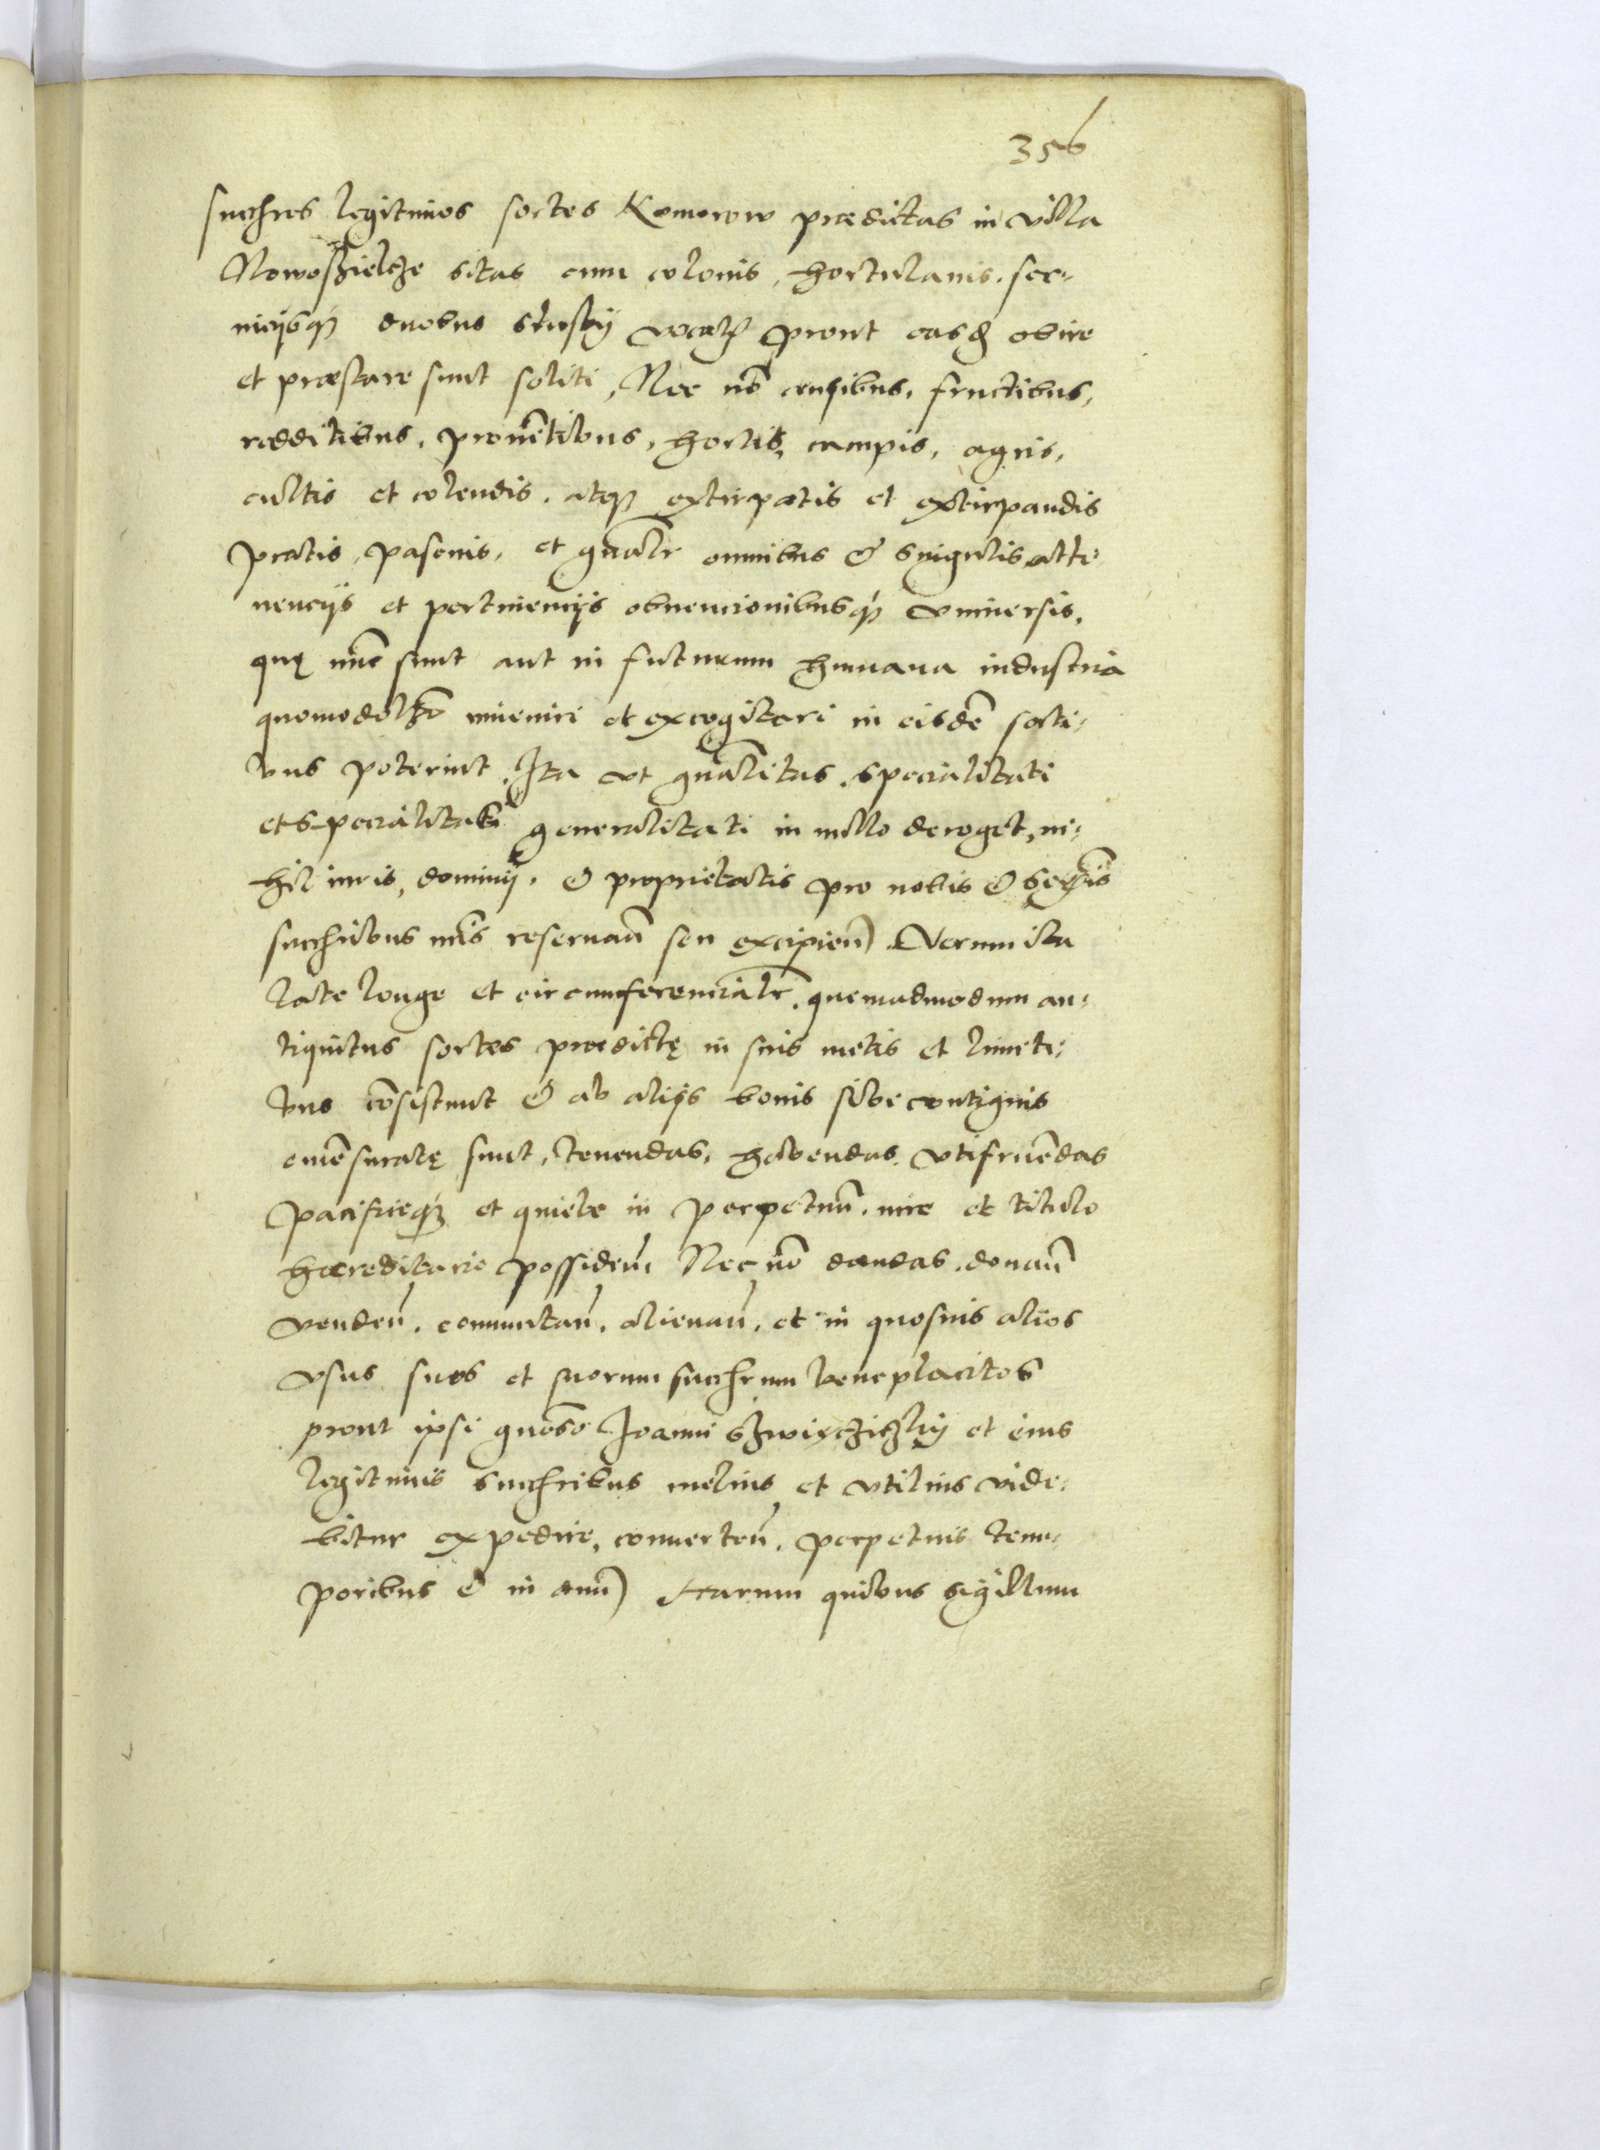 356
succħres legitimos sortes Komorow prædictas in villa
Nowoszielcze sitas cum colonis, hortulanis, ser-
uicijsq3 duobus służby vocatis prout easd obire
et præstare sunt soliti, Nec nō censibus, fructibus,
redditibus, prouētibus, hortis, campis, agris,
cultis et colendis, atq3 extirpatis et extirpandis
pratis, pascuis, et gnālr omnibus & singulis atti-
nencijs et pertinencijs obuencionibusq3 vniuersis,
quę nūc sunt aut in futurum humana industria
quomodolibet inueniri et excogitari in eisdē sorti-
bus poterint, Ita vt gnālitas, specialitati
et specialitas generalitati in nullo deroget, ni-
hil iuris, dominij, & proprietatis pro nobis &
succħribus nr̄is reseruan̄ seu excipien̄. Verum ita
late longe et circumferencialr, quemadmodum an-
tiquitus sortes prædictę in suis metis et limiti-
bus cōsistunt & ab alijs bonis sibi contiguis
emēsuratę sunt, tenendas, habendas, vtifruēdas
pacificeq3 et quiete in perpetuū, iure et titulo
hæreditario possiden̄ Nec nō dandas, donan̄
venden̄, commutan̄, alienan̄, et in quosuis alios
vsus suos et suorum succħrum beneplacitos
prout ipsi gnoso Joanni et eius
legitimis succħribus melius et vtilius vide-
bitur expedire, conuerten̄, perpetuis tem-
poribus & in æuū) Harum quibus sigillum